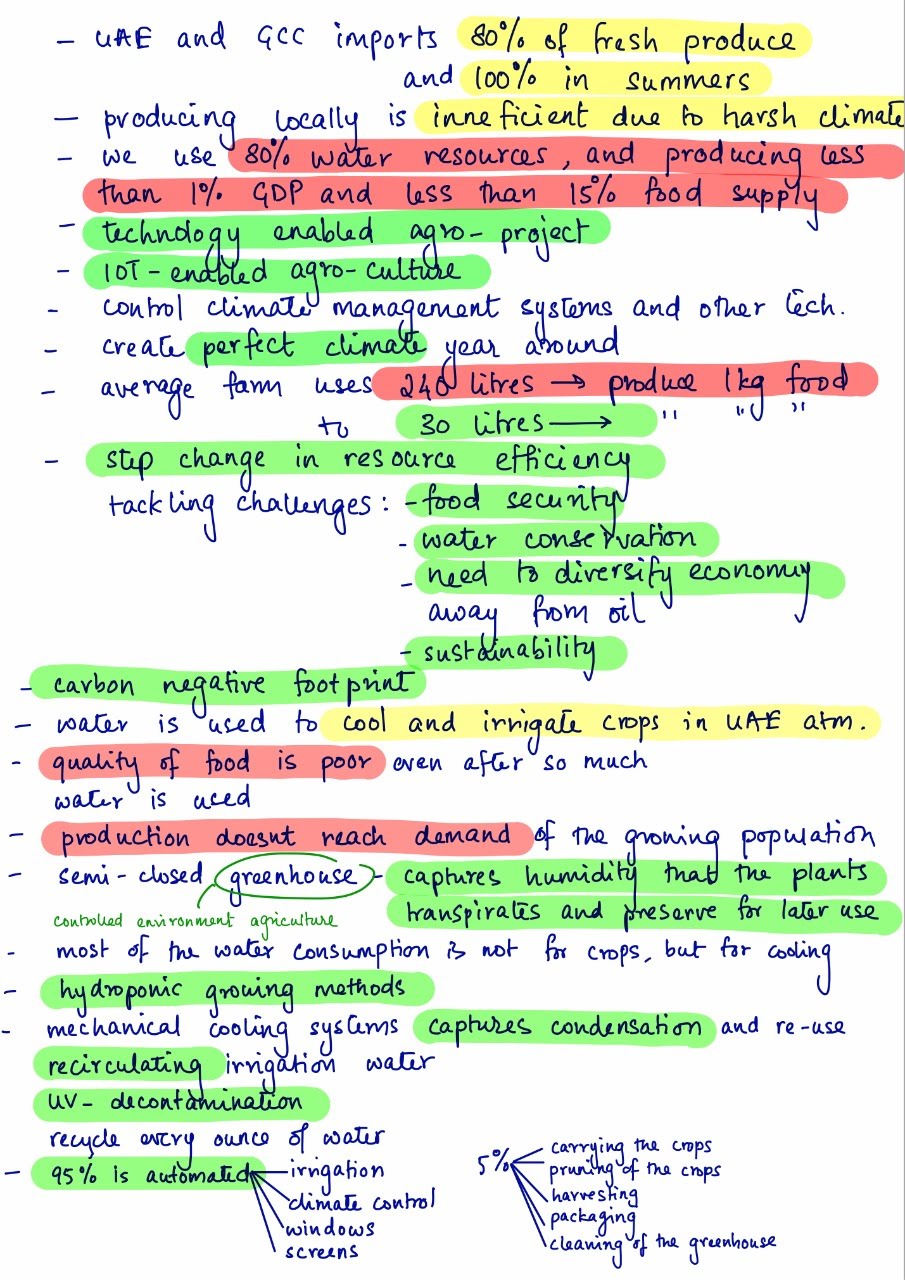 - UAE and GCC imports 80% of fresh produce
and 100% in summers
- producing locally is inneficient due to harsh climate
- we use 80% water resources, and producing less
than 1% GDP and less than 15% food supply
- technology enabled agro-project
- IOT-enabled agro-culture
- control climate management systems and other tech.
- create perfect climate year around
- average farm uses 240 litres → produce 1kg food
to 30 litres → " " "
- step change in resource efficiency
tackling challenges: - food security
- water conservation
- need to diversify economy
away from oil
- sustainability
- carbon negative footprint
- water is used to cool and irrigate crops in UAE atm.
- quality of food is poor even after so much
water is used
- production doesnt reach demand of the growing population
- semi-closed greenhouse - captures humidity that the plants
controlled environment agriculture transpirates and preserve for later use
- most of the water consumption is not for crops, but for cooling
- hydroponic growing methods
- mechanical cooling systems captures condensation and re-use
recirculating irrigation water
UV- decontamination
recycle every ounce of water
- 95% is automated irrigation
climate control
windows
screens
5% carrying the crops
pruning of the crops
harvesting
packaging
cleaning of the greenhouse